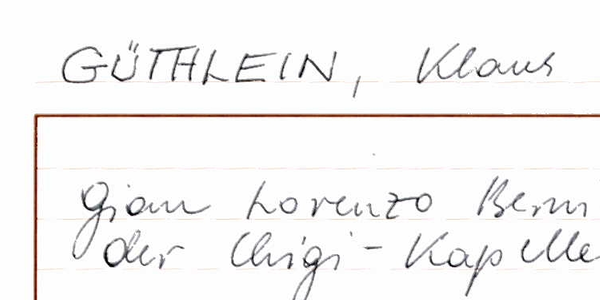 GÜTHLEIN, Klaus
Gian Lorenzo Berni
der Chigi-Kapelle